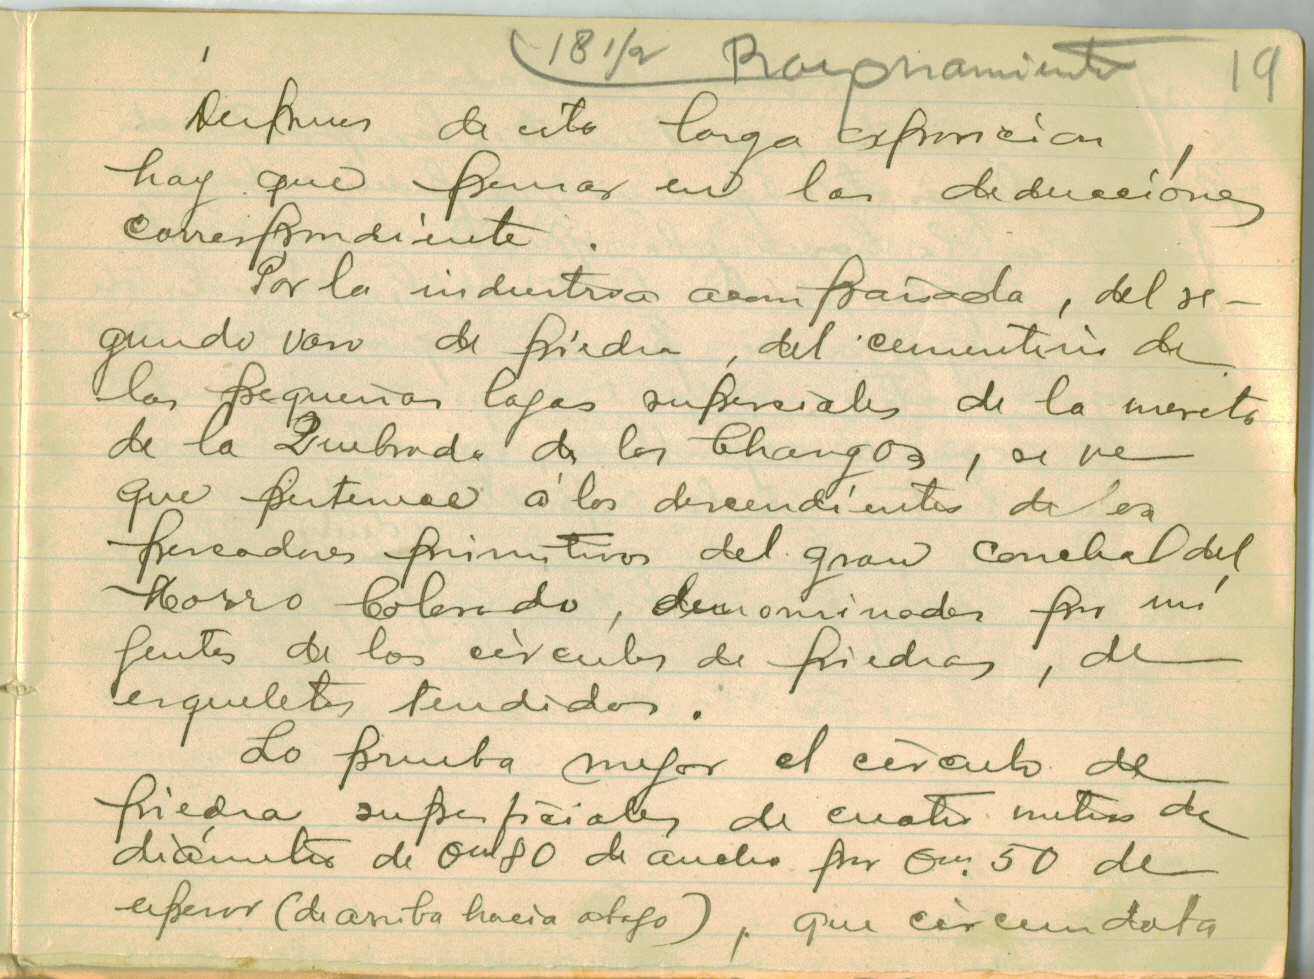 18 1/2 Razonamiento 19
Despues de esta larga exposicion,
hay que pensar en las deducciónes
correspondiente.
Por la industria acompañada, del se-
gundo vaso de piedra, del cementerio de
las pequeñas lajas superciales de la meseta
de la Quebrada de los Changos, se ve
que pertenece á los descendientes de los
pescadores primitivos del gran conchal del
Morro Colorado, denominados por mi
gentes de los circulos de piedras, de
esqueletos tendidos.
Lo prueba mejor el circulo de
piedra superficiales de cuatro metros de
diámetro de 0m80 de ancho por 0m.50 de
espesor (de arriba hacia abajo), que circundaba